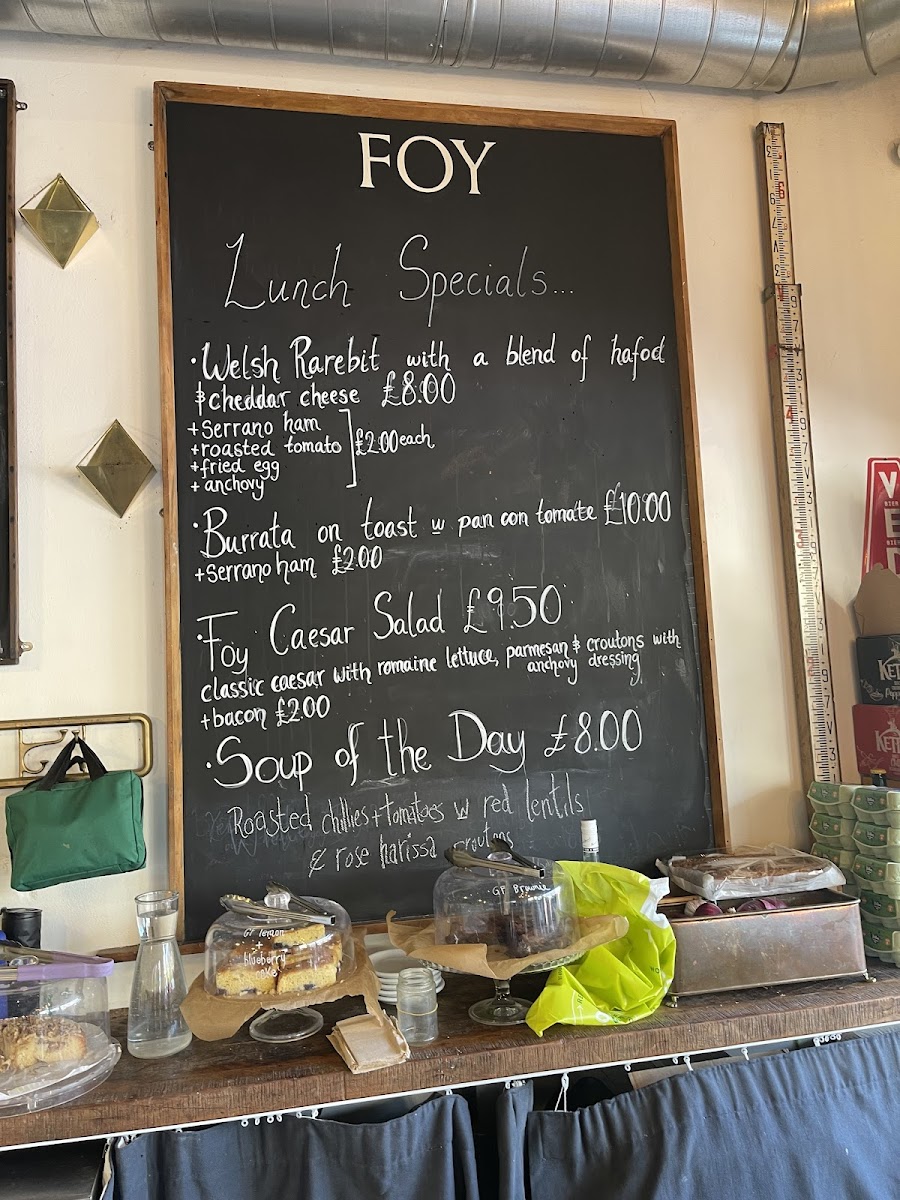 FOY
Lunch Specials...
· Welsh Rarebit with a blend of hafod
& cheddar cheese £8.00
+ Serrano ham
+ roasted tomato
+ fried egg
+ anchovy
£2.00 each
· Burrata on toast w pan con tomate £10.00
+ Serrano ham £2.00
· Foy Caesar Salad £9.50
classic caesar with romaine lettuce, parmesan & croutons with
anchovy dressing
+ bacon £2.00
· Soup of the Day £8.00
Roasted chillies + tomatoes w red lentils
& rose harissa croutons
GF lemon
+
blueberry
cake
GF Brownie